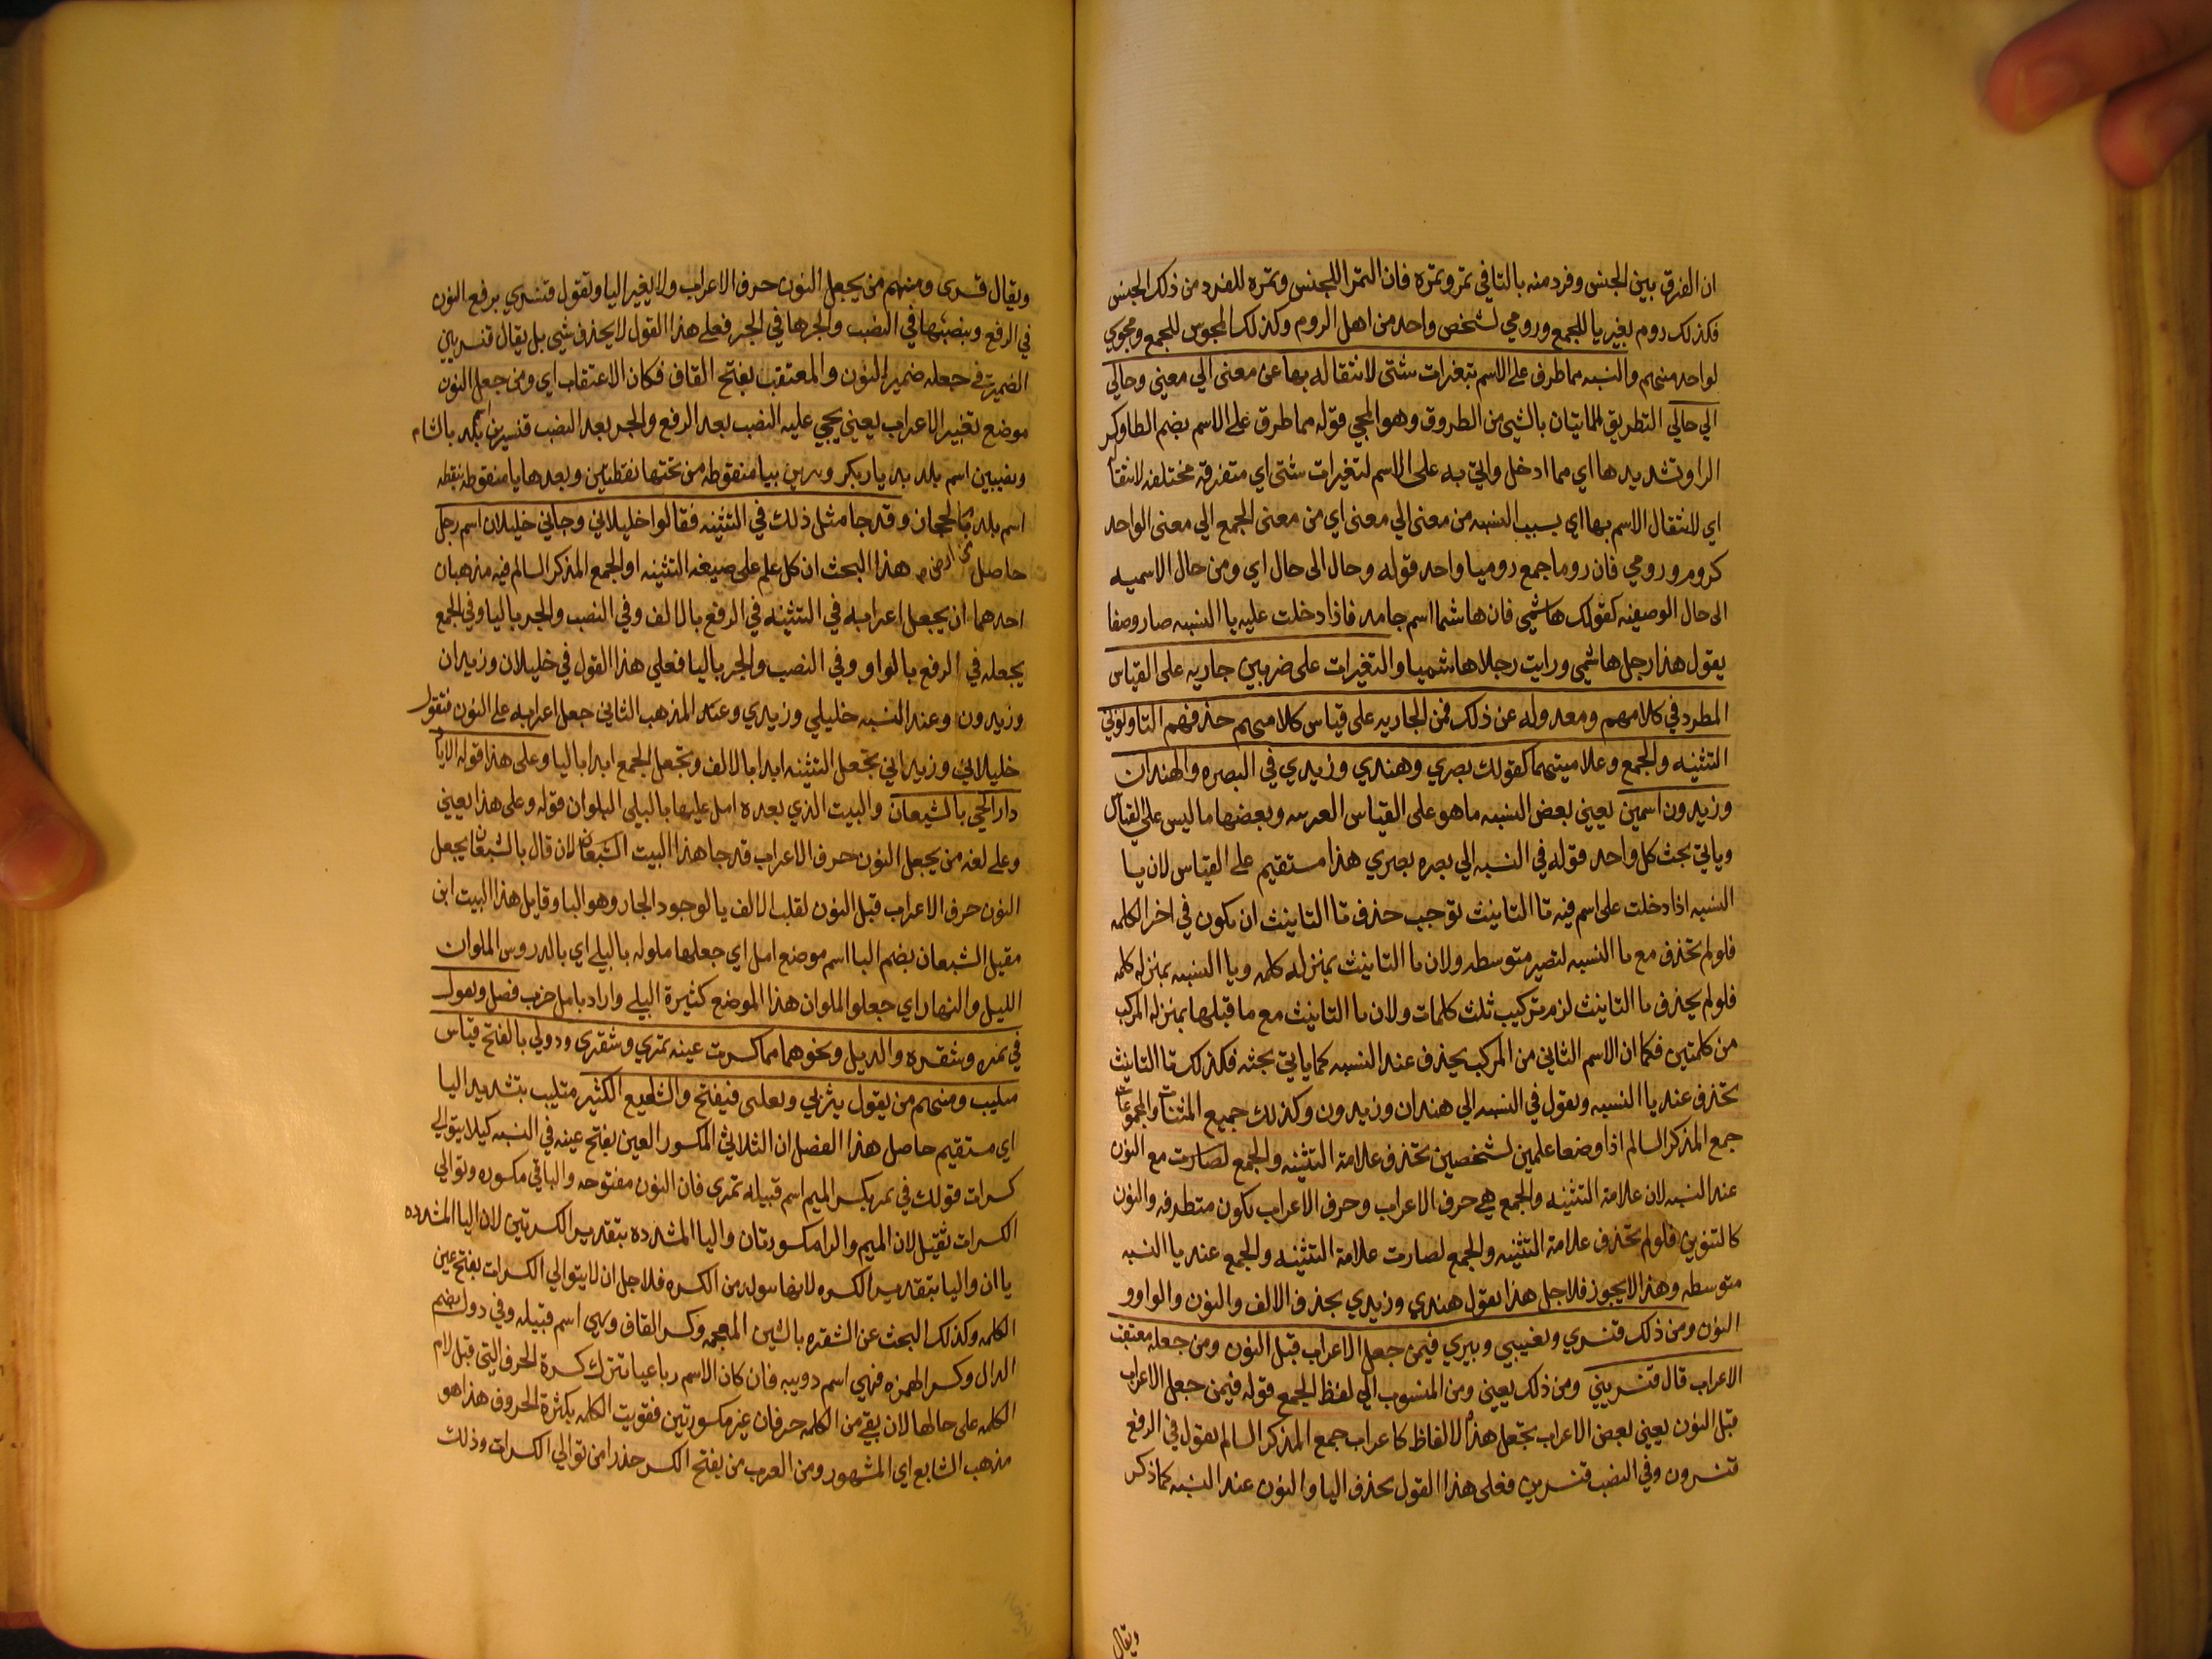 ان الفرق بين الجنس وفرد منه بالتا في تمر وتمرة فان التمر اللجنس وتمرة للفرد من ذلك الجنس
فكذلك روم بغير يا للجمع ورومي لشخص واحد من اهل الروم وكذلك المجوس للجمع ومجوسي
لواحد منهم والنسبه مما طرف على الاسم بتغيرات شتى لانتقاله بها عن معنى الي معنى وحالي
الي حالي التطريق الماتيتان بالشي من الطروق وهو المجي قوله مما طرق على الاسم بضم الطا وكر
الرا وتشديدها اي مما ادخل واتي به على الاسم لتغيرات شتى اي متفرقة مختلفه لانتقا
اي لانتقال الاسم بها اي بسبب النسبه من معنى الي معنى اي من معنى الجمع الي معنى الواحد
كروم ورومي فان روما جمع روميا واحد قوله وحال الى حال اي ومن حال الاسميه
الى حال الوصفيه كقولك هاشمي فان هاشما اسم جامد فاذا دخلت عليه يا النسبه صار وصفا
يقول هذا رجل هاشمي ورايت رجلا هاشميا والتغيرات على ضربين جاريه على القياس
المطرد في كلامهم ومعدوله عن ذلك فمن الجاريه على قياس كلامهم حذفهم التا ونوني
التثنيه والجمع وعلامتيهما كقولك بصري وهندي وزيدي في البصره والهندان
وزيدون اسمين يعيني بعض النسبه ما هو على القياس العربيه وبعضها ما ليس على القياس
وياتي بحث كل واحد قوله في النسبه الي بصره بصري هذا مستقيم على القياس لان يا
النسبه اذا دخلت على اسم فيه تا التانيث توجب حذف تا التانيث ان يكون في اخر الكلمه
فلو لم تحذف مع يا النسبه لتصير متوسطه ولان تا التانيث بمنزلة كلمه ويا النسبه بمنزله كلمه
فلو لم يحذف تا التانيث لزم تركيب ثلث كلمات ولان تا التانيث مع ما قبلها بمنزله المركب
من كلمتين فكما ان الاسم الثاني من المركب يحذف عند النسبه كما ياتي بحثه فكذلك تا التانيث
تحذف عند يا النسبه ويقول في النسبه الي هندان وزيدون وكذلك جميع المثنات والمجموعات
جمع المذكر السالم اذا وضعا علمين لشخصين تحذف علامة التثنيه والجمع لصارت مع النون
عند النسبه لان علامة التثنيه والجمع هي حرف الاعراب وحرف الاعراب يكون متطرفه والنون
كالتنوين فلو لم تحذف علامة التثنيه والجمع لصارت علامة التثنيه والجمع عند يا النسبه
متوسطه وهذا لايجوز فلاجل هذا يقول هندي وزيدي بحذف الالف والنون والواو و
النون ومن ذلك قنسري ونصيبي ويبري فيمن جعل الاعراب قبل النون ومن جعله معتقب
الاعراب قال قنسريني ومن ذلك يعيني ومن المنسوب الي لفظ الجمع قوله فيمن جعل الاعراب
قبل النون يعني بعض الاعراب يجعل هذه الالفاظ كاعراب جمع المذكر السالم يقول في الرفع
قنسرون وفي النصب قنسرين فعلى هذا القول يحذف اليا والنون عند النسبه كما ذكر
ويقال
ويقال قنسرى ومنهم من يجعل النون حرف الاعراب ولا يغير اليا ويقول قنسري برفع النون
في الرفع وبنصبها في النصب والجرها في الجر فعلى هذا القول لا يحذف شيى بل يقال قنسريني
الضمير في جعله ضمير النون والمعتقب بفتح القاف فكان الاعتقاب اي ومن جعل النون
موضع تغيير الاعراب يعني يجي عليه النصب بعد الرفع والجر بعد النصب قنسرين اسم بلد بالشام
ونصيبين اسم بلد بديار بكر ويبرين بيا منقوطه من تحتها نقطتين وبعدها با منقوطه نقطه
اسم بلد وقد جا مثل ذلك في التثنيه فقالوا خليلاني وجاني خليلان اسم رجل
حاصل هذا البحث ان كل علم على صيغة التثنيه او الجمع المذكر السالم فيه مذهبان
احدهما ان يجعل اعرابه في التثنيه في الرفع بالالف وفي النصب والجر باليا وفي الجمع
يجعله في الرفع بالواو وفي النصب والجر باليا فعلي هذا القول في خليلان وزيدان
وزيدون وعند النسبه خليلي وزيدي وعند المذهب الثاني جعل اعرابه على النون فتقول
خليلاني وزيداني تجعل التثنيه ابدا بالالف وتجعل الجمع ابدا باليا وعلى هذا قوله الا يا
دار الحي بالشبعان والبيت الذي بعده امل عليها بالبلي الملوان قوله وعلى هذا يعيني
وعلى لغه من يجعل النون حرف الاعراب قد جا هذا البيت الشبعان لان قال بالشبعان يجعل
النون حرف الاعراب قبل النون لقلب الالف يا لوجود الجار وهو البا وقايل هذا البيت ابن
مقبل الشبعان بضم البا اسم موضع امل اي جعلها ملوله بالبلي اي بالدروس الملوان
الليل والنهار اي جعلوا الملوان هذا الموضع كثيرة البلي واراد بامل خرب فصل ويقول
في نمره وشقره والديل ونحوهما مما كسرت عينه نمري وشقري ودولي بالفتح قياس
متليب ومنهم من يقول يثربي وتغلبى فيفتح والشايع الكثير متليب بتشديد اليا
اي مستقيم حاصل هذا الفصل ان الثلاثي المكسور العين يفتح عينه في النسبه كيلا يتوالي
كسرات قولك في نمر بكسر الميم اسم قبيله نمري فان النون مفتوحه والباقي مكسوره وتوالي
الكسرات ثقيل لان الميم والرا مكسورتان واليا المشدده بتقدير الكسرتين لان اليا المشدده
يا ان واليا بتقدير الكسره لانها متولد من الكسره فلاجل ان لايتوالي الكسرات يفتح عين
الكلمه وكذلك البحث عن الشقره بالشين المعجمه وكسر القاف وهي اسم قبيله وفي دول بضم
الدال وكسر الهمزه فهي اسم دويبه فان كان الاسم رباعيا تترك كسرة الحرف التي قبل لام
الكلمه على حالها لان بقي من الكلمه حرفان غير مكسورتين فقويت الكلمه بكثرة الحروف هذا هو
مذهب الشايع اي المشهور ومن العرب من يفتح الكسر حذرا من توالي الكسرات وذلك